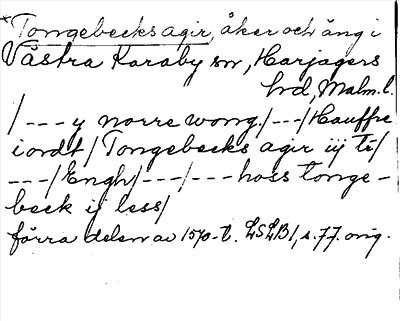 *Tongebecks agir, åker och äng i
Västra Karaby sn, Harjagers
hrd, Malm. l.
/---y norre wong/---/Hauffre
iordt/Tongebecks agir iij té/
---/Engh/---/---hoss tonge-
beck ij less/
förra delen av 1570-t. LSLB1, s. 77. orig.